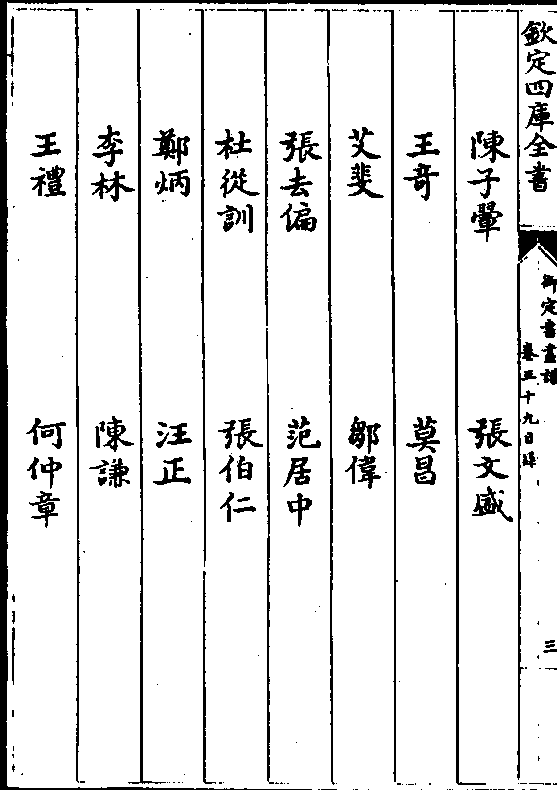 欽定四庫全書
御定書畫譜
卷三十九目錄
三
陳子翬 張文盛
王竒 莫昌
艾斐 鄒偉
張去偏 范居中
杜從訓 張伯仁
鄭炳 汪正
李林 陳謙
王禮 何仲章